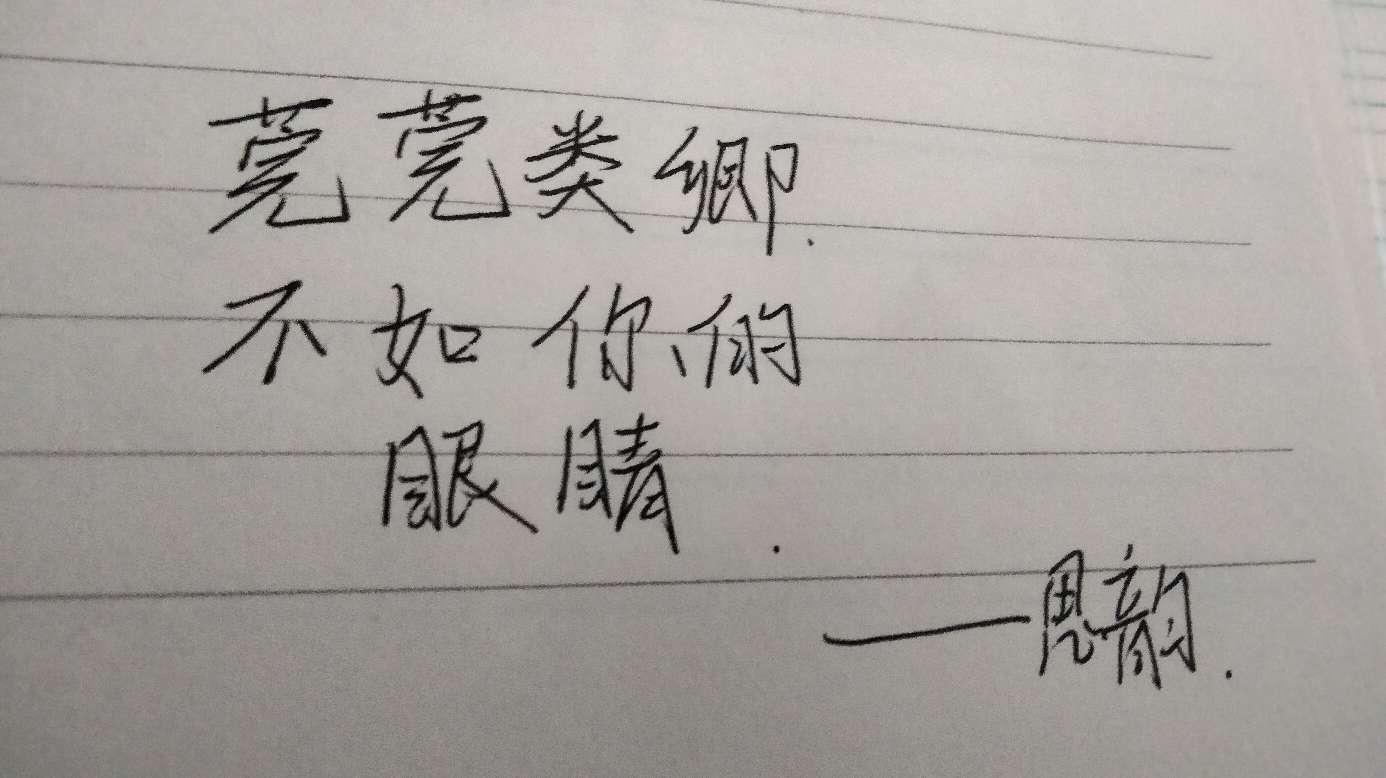 莞莞类卿.
不如你的
眼睛.
——思韵.